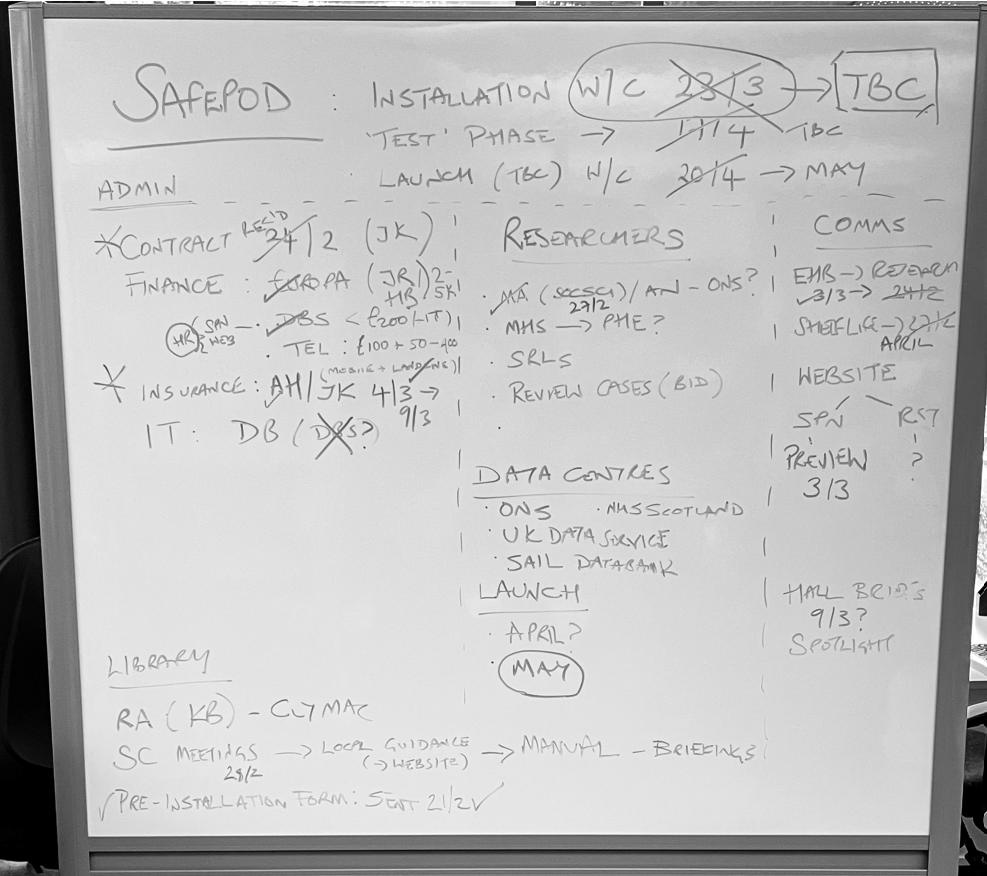 SAFEPOD : INSTALLATION W/C 23/3 → TBC
'TEST' PHASE → 1/4 TBC
LAUNCH (TBC) W/C 20/4 → MAY
ADMIN
* CONTRACT REC'D 24/2 (JK)
FINANCE : EUROPA (JR) 2-
HR / 5K
HR SPN WEB - . DBS < £200 (-IT)
. TEL : £100 + 50-400
(MOBILE + LANDLINE)
* INSURANCE : AH/JK 4/3 →
9/3
IT : DB (DBS?)
RESEARCHERS
. (SOCSCI) / AN - ONS?
27/2
. MHS → PHE?
. SRLS
. REVIEW CASES (BID)
.
DATA CENTRES
. ONS . NHS SCOTLAND
. UK DATA SERVICE
. SAIL DATABANK
LAUNCH
. APRIL?
. MAY
COMMS
EHB → RESEARCH
3/3 → 24/2
SHELF LIFE → 27/2
APRIL
WEBSITE
SPN RST
PREVIEW ?
3/3
HALL BRIEFS
9/3?
SPOTLIGHT
LIBRARY
RA (KB) - CLY MAC
SC MEETINGS → LOCAL GUIDANCE → MANUAL - BRIEFINGS
28/2 (→ WEBSITE)
✓ PRE-INSTALLATION FORM : SENT 21/2 ✓